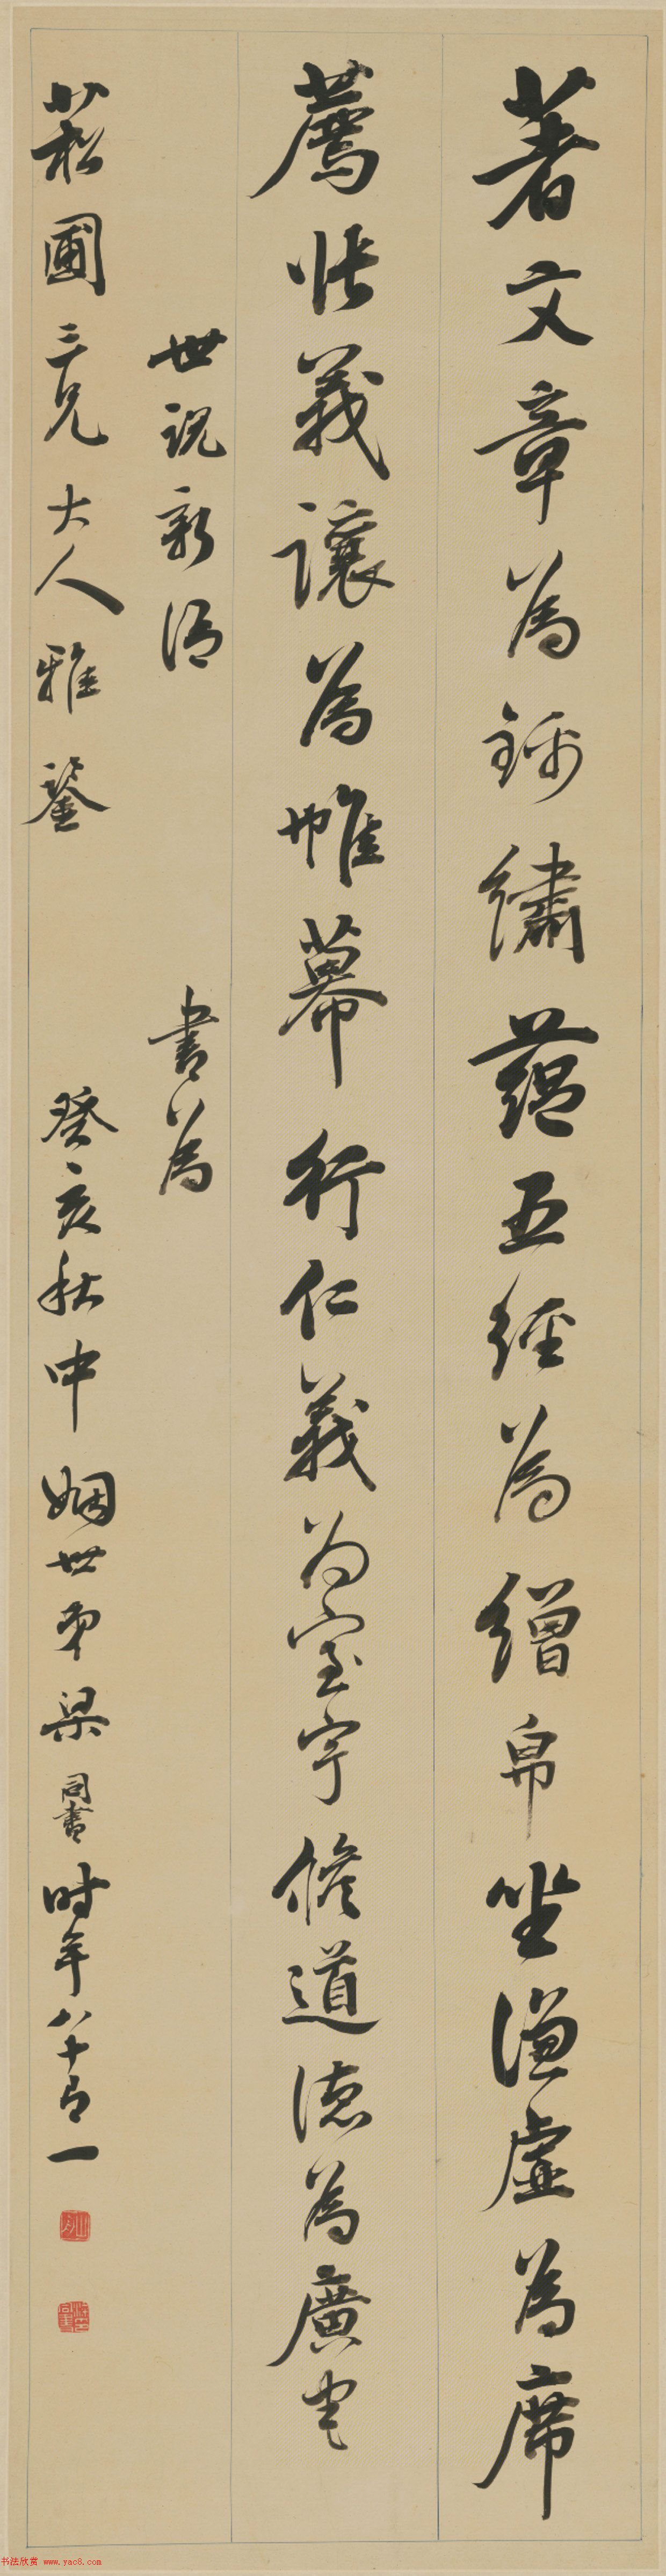 著文章為錦繡蘊五經為繒帛坐謙虛為席
薦張義讓為帷幕行仁義為室宇脩道德為廣宅
世說新語
書為
菘圃三兄大人雅鑒
癸亥秋中姻世弟梁同書時年八十有一
书法欣赏 www.yac8.com